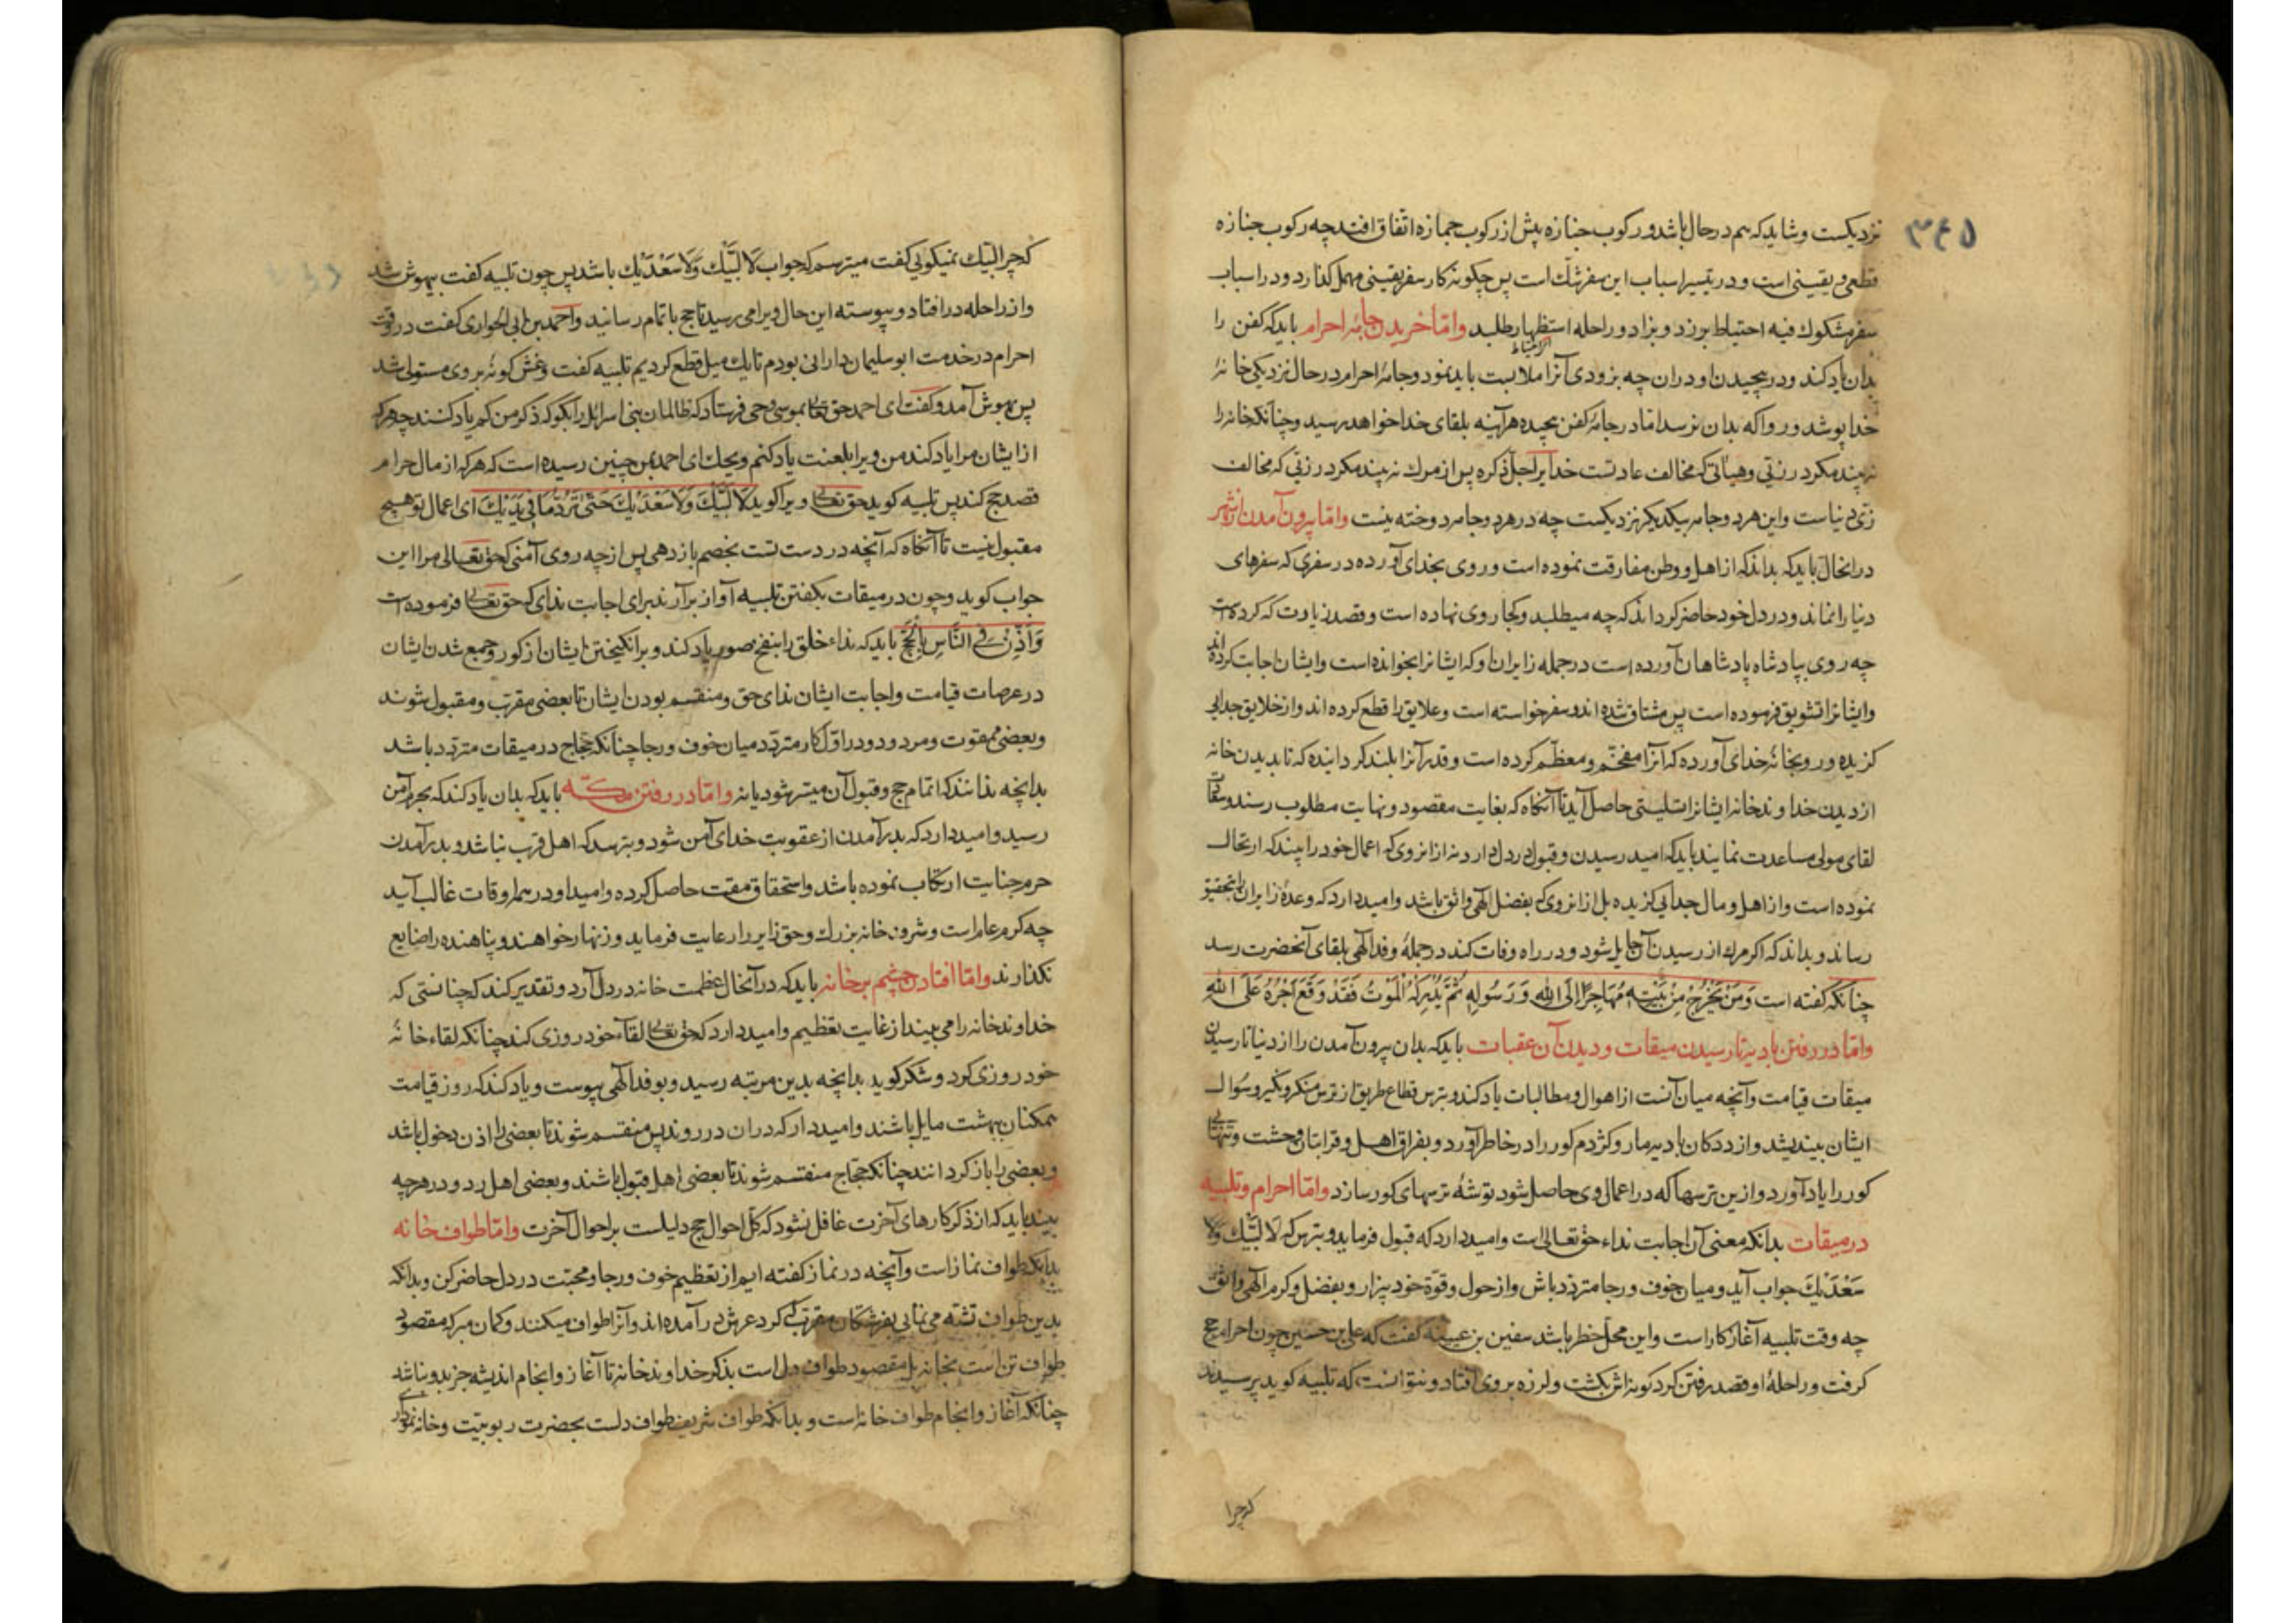 ۳۴۵
نزدیکست و شاید که هم در حال باشد و رکوب جنازه پیش از رکوب جمازه اتفاق افتد چه رکوب جنازه
قطعی و یقینی است و در تیسیر اسباب این سفر شک است پس چکونه کار سفر یقینی مهمل کذارد و در اسباب
سفر مشکوك فیه احتیاط برزد و بزاد و راحله استظهار طلبد و اما خریدن جامهٔ احرام باید که کفن را
بدان یاد کند و در پیچیدن او دران چه بزودی آنرا ملابست باید نمود و جامهٔ احرام در حال نزدیکی خانهٔ
خدا پوشد و روا که بدان نرسد اما در جامهٔ کفن پیچیده هر آینه بلقای خدا خواهد رسید و چنانکه خانه را
نه بیند مکر در زیّی و هیأتی که مخالف عادتست خدایرا جلّ ذکره پس از مرك نه بیند مکر در زیّی که مخالف
زیّ دنیاست و این هر دو جامه بیکدیکر نزدیکست چه در هر دو جامه دوخته نیست و اما بیرون آمدن از شهر
در انحال باید که بداند که از اهل و وطن مفارقت نموده است و روی بخدای آورده در سفری که سفرهای
دنیا را نماند و در دل خود حاضر کرداند که چه میطلبد و کجا روی نهاده است و قصد زیارت که کرده است
چه روی بپادشاه پادشاهان آورده است در جمله زایران او که ایشانرا بخوانده است و ایشان اجابت کرده اند
و ایشانرا تشویق فرموده است پس مشتاق شده اند و سفر خواسته است و علایق را قطع کرده اند و از خلایق جدایی
کزیده و رو بخانهٔ خدای آورده که آنرا مفخّم و معظّم کرده است و قدر آنرا بلند کردانیده که تا بدیدن خانه
از دیدن خداوند خانه ایشانرا تسلیتی حاصل آید تا آنکاه که بغایت مقصود و نهایت مطلوب رسند و سعادت
لقای مولی مساعدت نمایند باید که امید رسیدن و قبول در دل دارد نه از انروی که اعمال خود را بیند که ارتحال
نموده است و از اهل و مال جدایی کزیده بل از انروی که بفضل الهی واثق باشد و امید دارد که وعدهٔ زایران را بتحقیق
رساند و بداند که اکر مرك از رسیدن آن حایل شود و در راه وفات کند در جملهٔ وفد الهی بلقای آنحضرت رسد
چنانکه کفته است وَمَنْ یَخْرُجْ مِنْ بَیْتِهِ مُهَاجِرًا اِلَی اللهِ وَرَسُولِهِ ثُمَّ یُدْرِکْهُ الْمَوْتُ فَقَدْ وَقَعَ اَجْرُهُ عَلَی اللهِ
و اما در رفتن بادیه تا رسیدن میقات و دیدن آن عقبات باید که بدان بیرون آمدن را از دنیا تا رسیدن
میقات قیامت و آنچه میان آنست از اهوال و مطالبات یاد کند و بترس قطاع طریق از ترس منکر و نکیر و سؤال
ایشان بیندیشد و از ددکان بادیه مار و کژدم کور را در خاطر آورد و بفراق اهل و قرابتان وحشت و تنهایی
کور را یاد آورد و ازین ترسها که در اعمال وی حاصل شود توشهٔ ترسهای کور سازد و اما احرام و تلبیه
در میقات بدانکه معنی آن اجابت نداء حق تعالی است و امید دارد که قبول فرماید و بترس که لا لَبَّیْكَ وَلا
سَعْدَیْكَ جواب آید و میان خوف و رجا متردّد باش و از حول و قوّة خود بیزار و بفضل و کرم الهی واثق
چه وقت تلبیه آغاز کار است و این محل خطر باشد سفین بن عیینه کفت که علی بن حسین چون احرام حج
کرفت و راحلهٔ او قصد رفتن کرد کونه اش بکشت و لرزه بر وی افتاد و نتوانست که تلبیه کوید پرسیدند
که چرا
که چرا لبّیك نمیکویی کفت میترسم که جواب لا لَبَّیْكَ وَلا سَعْدَیْكَ باشد پس چون تلبیه کفت بیهوش شد
و از راحله در افتاد و پیوسته این حال ویرا می رسید تا حج باتمام رسانید و احمد بن ابی الحواری کفت در وقت
احرام در خدمت ابو سلیمان دارانی بودم تا یك میل قطع کردیم تلبیه کفت و غش کونهٔ بر وی مستولی شد
پس بهوش آمد و کفت ای احمد حق تعالی بموسی وحی فرستاد که ظالمان بنی اسرائل را بکو که ذکر من کم یاد کنند چه هر که
از ایشان مرا یاد کند من ویرا بلعنت یاد کنم ویحك ای احمد بمن چنین رسیده است که هر که از مال حرام
قصد حج کند پس تلبیه کوید حق تعالی ویرا کوید لَا لَبَّیْكَ وَلَا سَعْدَیْكَ حَتّٰی تَرُدَّ مَا فِی یَدَیْكَ ای اعمال تو هیچ
مقبول نیست تا آنکاه که آنچه در دست تست بخصم باز دهی پس از چه روی آمنی که حق تعالی مرا این
جواب کوید و چون در میقات بکفتن تلبیه آواز برآرند برای اجابت ندای که حق تعالی فرموده است
وَاَذِّنْ فِی النَّاسِ بِالْحَجِّ باید که نداء خلق را بنفخ صور یاد کند و برانکیختن ایشان از کور و جمع شدن ایشان
در عرصات قیامت و اجابت ایشان ندای حق و منقسم بودن ایشان تا بعضی مقرّب و مقبول شوند
و بعضی ممقوت و مردود و در اوّل کار متردّد میان خوف و رجا چنانکه حجّاج در میقات متردّد باشد
بدانچه ندانند که اتمام حج و قبول آن میسّر شود یا نه و اما در رفتن مکّه باید که بدان یاد کند که بحرم آمن
رسید و امید دارد که بدر آمدن از عقوبت خدای آمن شود و بترسد که اهل قرب نباشد و بدر آمدن
حرم جنایت ارتکاب نموده باشد و استحقاق مقت حاصل کرده و امید او در همه اوقات غالب آید
چه کرم عام است و شرف خانه بزرك و حق زایر را رعایت فرماید و زنهار خواهنده و پناهنده را ضایع
نکذارند و اما افتادن چشم بر خانه باید که در آنحال عظمت خانه در دل آرد و تقدیر کند که چنانستی که
خداوند خانه را می بیند از غایت تعظیم و امید دارد که حق تعالی لقاء خود روزی کند چنانکه لقاء خانهٔ
خود روزی کرد و شکر کوید بدانچه بدین مرتبه رسید و بوفد الهی پیوست و یاد کند که روز قیامت
همکنان ببهشت مایل باشند و امیددار که دران در روند پس منقسم شوند تا بعضی را اذن دخول باشد
و بعضی را باز کردانند چنانکه حجّاج منقسم شوند تا بعضی اهل قبول باشند و بعضی اهل رد و در هر چه
بیند باید که از ذکر کارهای آخرت غافل نشود که کل احوال حج دلیلست بر احوال آخرت و اما طواف خانه
بدانکه طواف نماز است و آنچه در نماز کفته ایم از تعظیم خوف و رجا و محبّت در دل حاضر کن و بدانکه
بدین طواف تشبه می نمایی بفرشتکان مقرّب که کرد عرش در آمده اند و آنرا طواف میکنند و کمان مبر که مقصود
طواف تن است بخانه بل مقصود طواف دل است بذکر خداوند خانه تا آغاز و انجام اندیشه جز بدو نباشد
چنانکه آغاز و انجام طواف خانه است و بدانکه طواف شریف طواف دلست بحضرت ربوبیّت و خانه